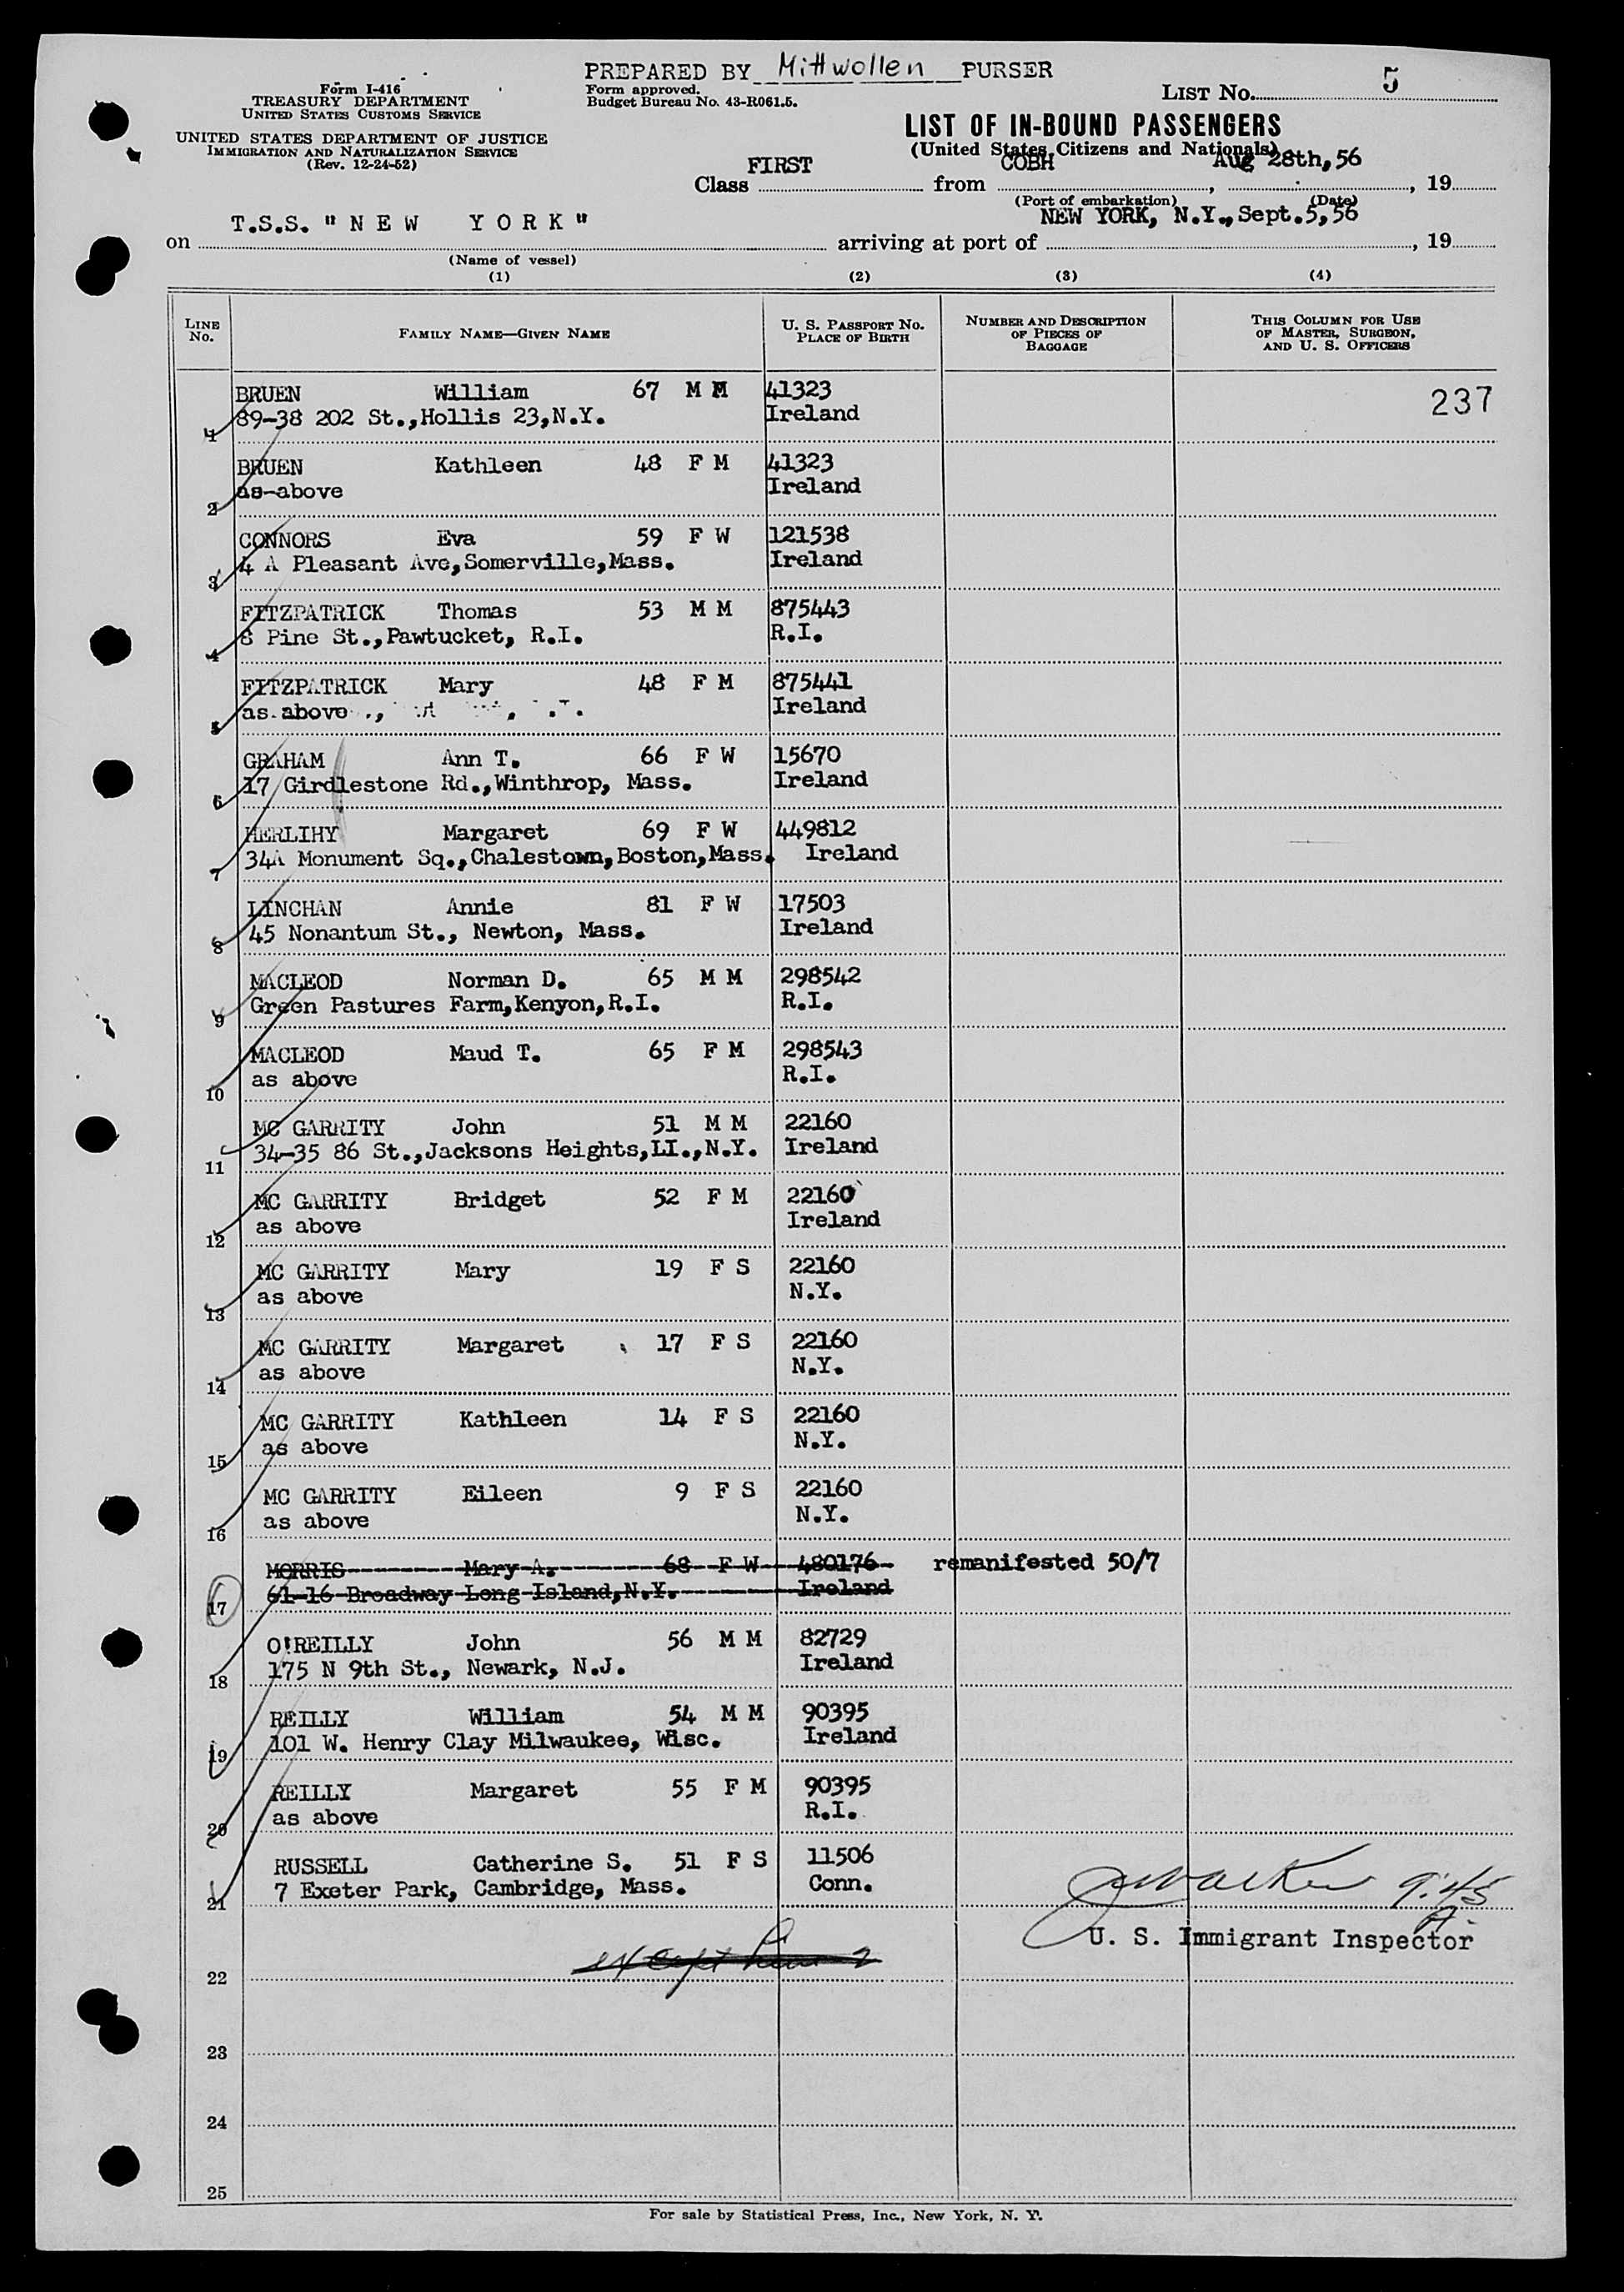 PREPARED BY Mittwollen PURSER
Form I-416
TREASURY DEPARTMENT
UNITED STATES CUSTOMS SERVICE
Form approved.
Budget Bureau No. 43-R061.5.
LIST NO. 5
UNITED STATES DEPARTMENT OF JUSTICE
IMMIGRATION AND NATURALIZATION SERVICE
(Rev. 12-24-52)
LIST OF IN-BOUND PASSENGERS
(United States Citizens and Nationals)
Class FIRST from COBH, Aug 28th,56, 19
(Port of embarkation) (Date)
on T.S.S. "NEW YORK" arriving at port of NEW YORK, N.Y., Sept.5,56, 19
(Name of vessel)
(1) (2) (3) (4)
LINE NO. FAMILY NAME—GIVEN NAME U. S. PASSPORT NO. PLACE OF BIRTH NUMBER AND DESCRIPTION OF PIECES OF BAGGAGE THIS COLUMN FOR USE OF MASTER, SURGEON, AND U. S. OFFICERS
BRUEN William 67 M M 41323 237
1 89-38 202 St.,Hollis 23,N.Y. Ireland
BRUEN Kathleen 48 F M 41323
2 as-above Ireland
CONNORS Eva 59 F W 121538
3 4 A Pleasant Ave,Somerville,Mass. Ireland
FITZPATRICK Thomas 53 M M 875443
4 8 Pine St.,Pawtucket, R.I. R.I.
FITZPATRICK Mary 48 F M 875441
5 as above Ireland
GRAHAM Ann T. 66 F W 15670
6 17 Girdlestone Rd.,Winthrop, Mass. Ireland
HERLIHY Margaret 69 F W 449812
7 34A Monument Sq.,Chalestown,Boston,Mass. Ireland
LINCHAN Annie 81 F W 17503
8 45 Nonantum St., Newton, Mass. Ireland
MACLEOD Norman D. 65 M M 298542
9 Green Pastures Farm,Kenyon,R.I. R.I.
MACLEOD Maud T. 65 F M 298543
10 as above R.I.
MC GARRITY John 51 M M 22160
11 34-35 86 St.,Jacksons Heights,LI.,N.Y. Ireland
MC GARRITY Bridget 52 F M 22160
12 as above Ireland
MC GARRITY Mary 19 F S 22160
13 as above N.Y.
MC GARRITY Margaret 17 F S 22160
14 as above N.Y.
MC GARRITY Kathleen 14 F S 22160
15 as above N.Y.
MC GARRITY Eileen 9 F S 22160
16 as above N.Y.
MORRIS Mary A. 68 F W 480176 remanifested 50/7
17 61-16 Broadway Long Island,N.Y. Ireland
O'REILLY John 56 M M 82729
18 175 N 9th St., Newark, N.J. Ireland
REILLY William 54 M M 90395
19 101 W. Henry Clay Milwaukee, Wisc. Ireland
REILLY Margaret 55 F M 90395
20 as above R.I.
RUSSELL Catherine S. 51 F S 11506
21 7 Exeter Park, Cambridge, Mass. Conn.
U. S. Immigrant Inspector
22 except
23
24
25
For sale by Statistical Press, Inc., New York, N. Y.